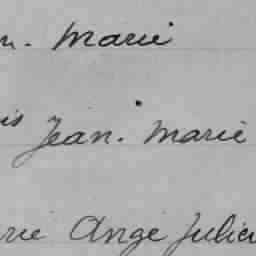 n. Marie
is Jean. Marie
rie Ange Julien